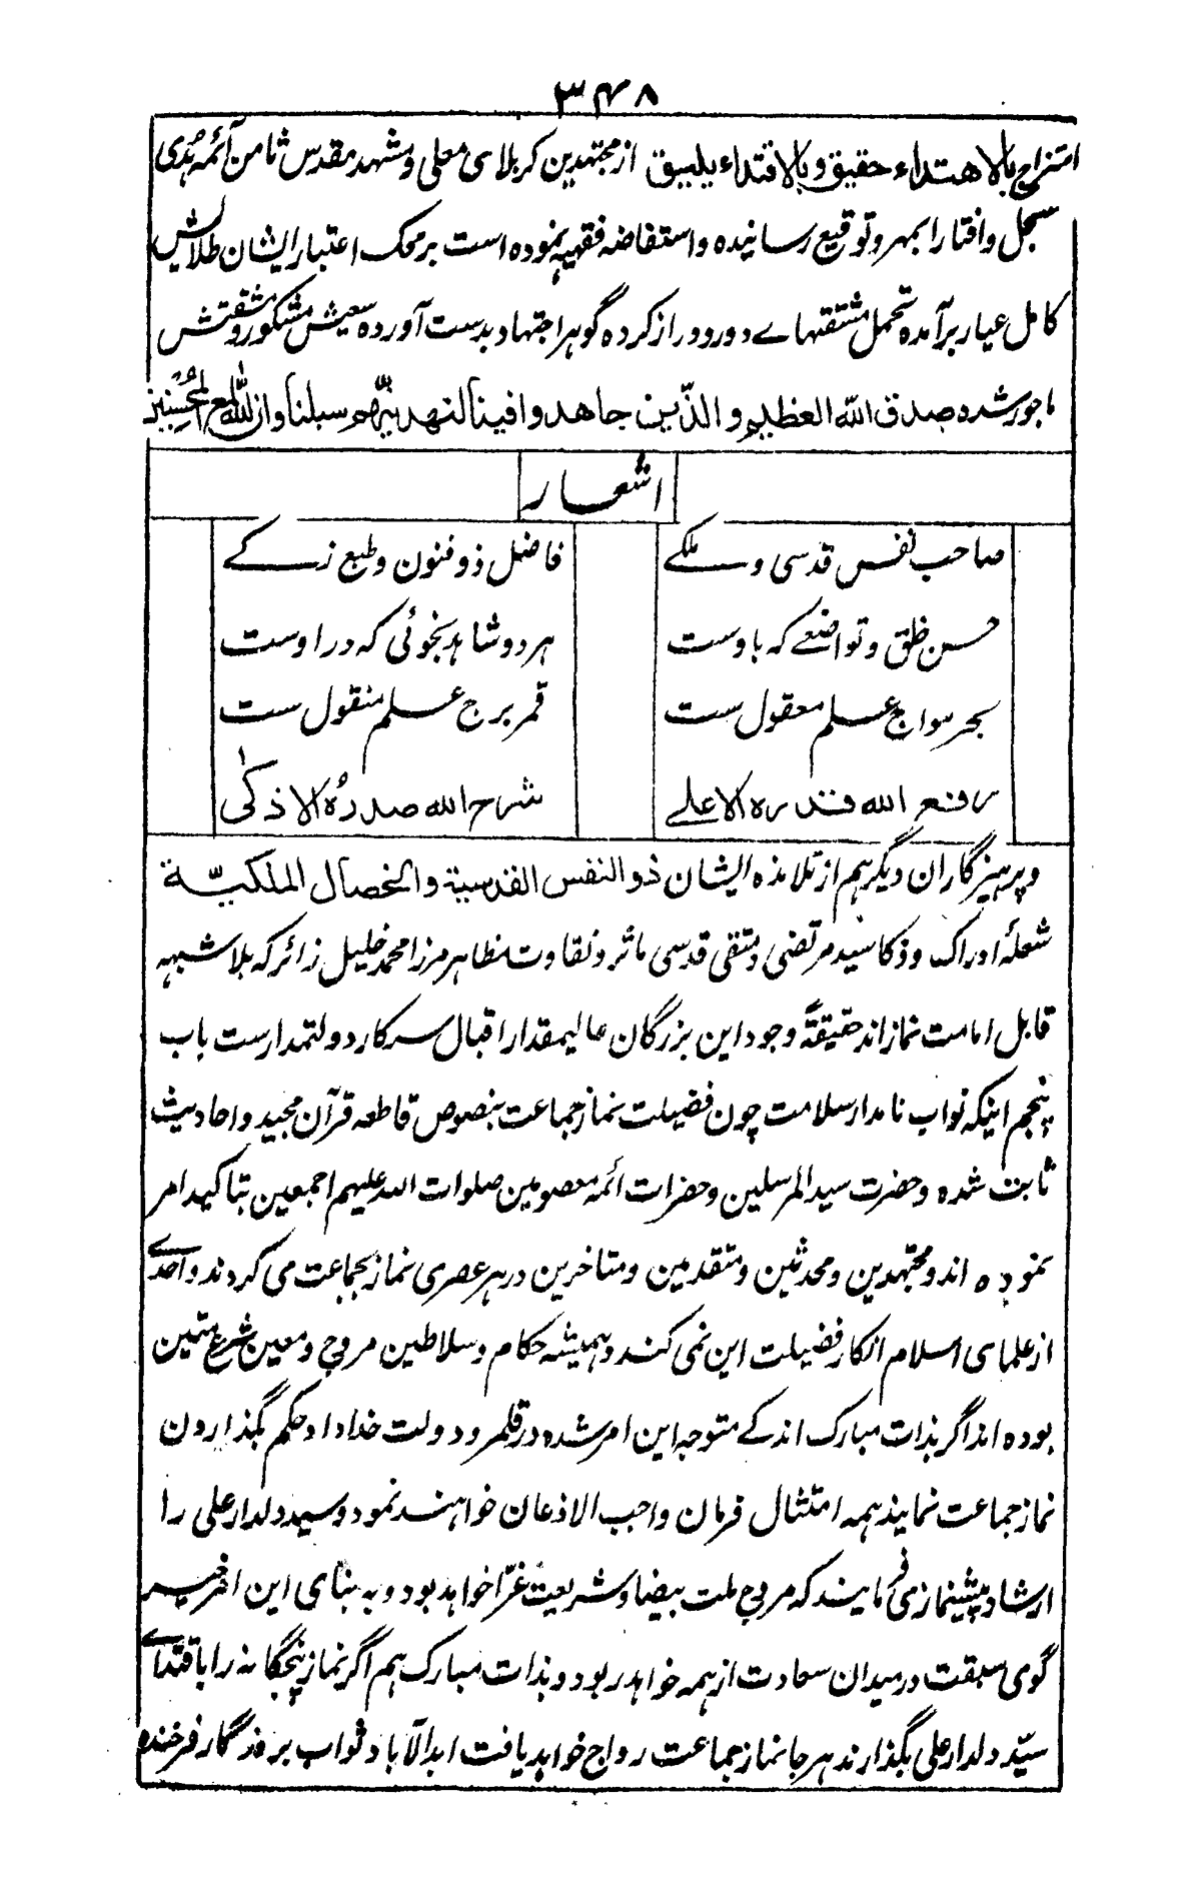 ۳۴۸
امتزاج بالاهتداء حقیق و بالاقتداء یلیق از مجتهدین کربلای معلی و مشهد مقدس ثامن آئمه هُدی
سجل و افتا را بمهر و توقیع رسانیده و استفاضه فقهیه نموده است بر محک اعتبار ایشان طلایش
کامل عیار برآمده تحمل مشقتهاے دور و دراز کرده گوهر اجتهاد بدست آورده سعیش مشکور و مشقتش
ماجور شده صدق الله العظیم والذین جاهدوا فینا لنهدینهم سبلنا وان الله لمع المحسنین
اشعار
صاحب نفس قدسی و ملکے
فاضل ذوفنون و طبع زکے
حسن خلق و تواضعے که با وست
هر دو شاهد بنجوئی که در اوست
بحر مواج علم معقول ست
قمر برج علم منقول ست
رفع الله قدره الاعلے
شرح الله صدرُه الاذکٰی
و پرهیزگاران دیگر هم از تلامذه ایشان ذوالنفس القدسیة والخصال الملکیّة
شعلهٔ ادراک و ذکا سید مرتضی و متقی قدسی ماثر و نقاوت مظاهر مرزا محمد خلیل زائر که بلا شبهه
قابل امامت نماز اند حقیقةً وجود این بزرگان عالیمقدار اقبال سرکار دولتمدارست باب
پنجم اینکه نواب نامدار سلامت چون فضیلت نماز جماعت بنصوص قاطعه قرآن مجید و احادیث
ثابت شده و حضرت سید المرسلین و حضرات ائمه معصومین صلوات الله علیهم اجمعین بتاکید امر
نموده اند و مجتهدین و محدثین و متقدمین و متاخرین در هر عصری نماز بجماعت می کردند و احدے
از علمای اسلام انکار فضیلت این نمی کند و همیشه حکام و سلاطین مروج و معین شرع متین
بوده اند اگر بذات مبارک اندکے متوجه این امر شده در قلمرو دولت خداداد حکم بگذاردن
نماز جماعت نمایند همه امتثال فرمان واجب الاذعان خواهند نمود و سید دلدار علی را
ارشاد پیشنمازی فرمایند که مروج ملت بیضا و شریعت غرّا خواهد بود و به بنای این امر خیر
گوی سبقت در میدان سعادت از همه خواهد ربود و بذات مبارک هم اگر نماز پنجگانه را باقتداے
سیّد دلدار علی بگذارند هر جا نماز جماعت رواج خواهد یافت ابدالآباد ثواب بروزگار فرخنده